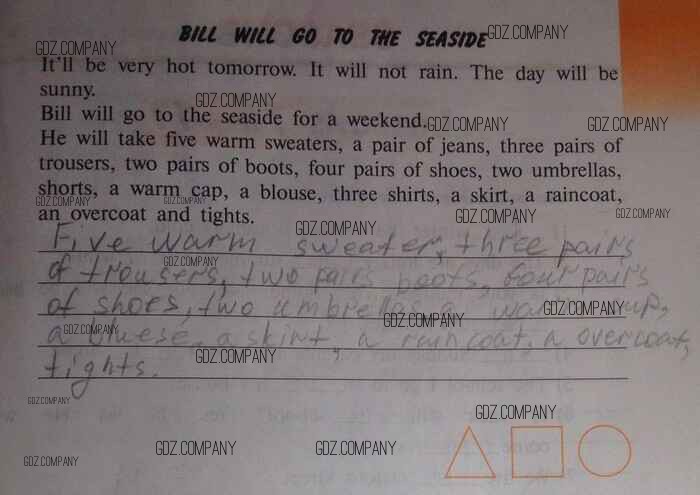 BILL WILL GO TO THE SEASIDE
GDZ.COMPANY
GDZ.COMPANY
It'll be very hot tomorrow. It will not rain. The day will be
sunny.
GDZ.COMPANY
Bill will go to the seaside for a weekend.
GDZ.COMPANY
GDZ.COMPANY
He will take five warm sweaters, a pair of jeans, three pairs of
trousers, two pairs of boots, four pairs of shoes, two umbrellas,
shorts, a warm cap, a blouse, three shirts, a skirt, a raincoat,
GDZ.COMPANY
GDZ.COMPANY
an overcoat and tights.
GDZ.COMPANY
GDZ.COMPANY
GDZ.COMPANY
Five warm sweater, three pairs
GDZ.COMPANY
of trousers, two pairs boots, four pairs
of shoes, two umbrellas, a
GDZ.COMPANY
GDZ.COMPANY
GDZ.COMPANY
a bluese, a skirt, a raincoat, a overcoat,
GDZ.COMPANY
tights.
GDZ.COMPANY
GDZ.COMPANY
GDZ.COMPANY
GDZ.COMPANY
GDZ.COMPANY